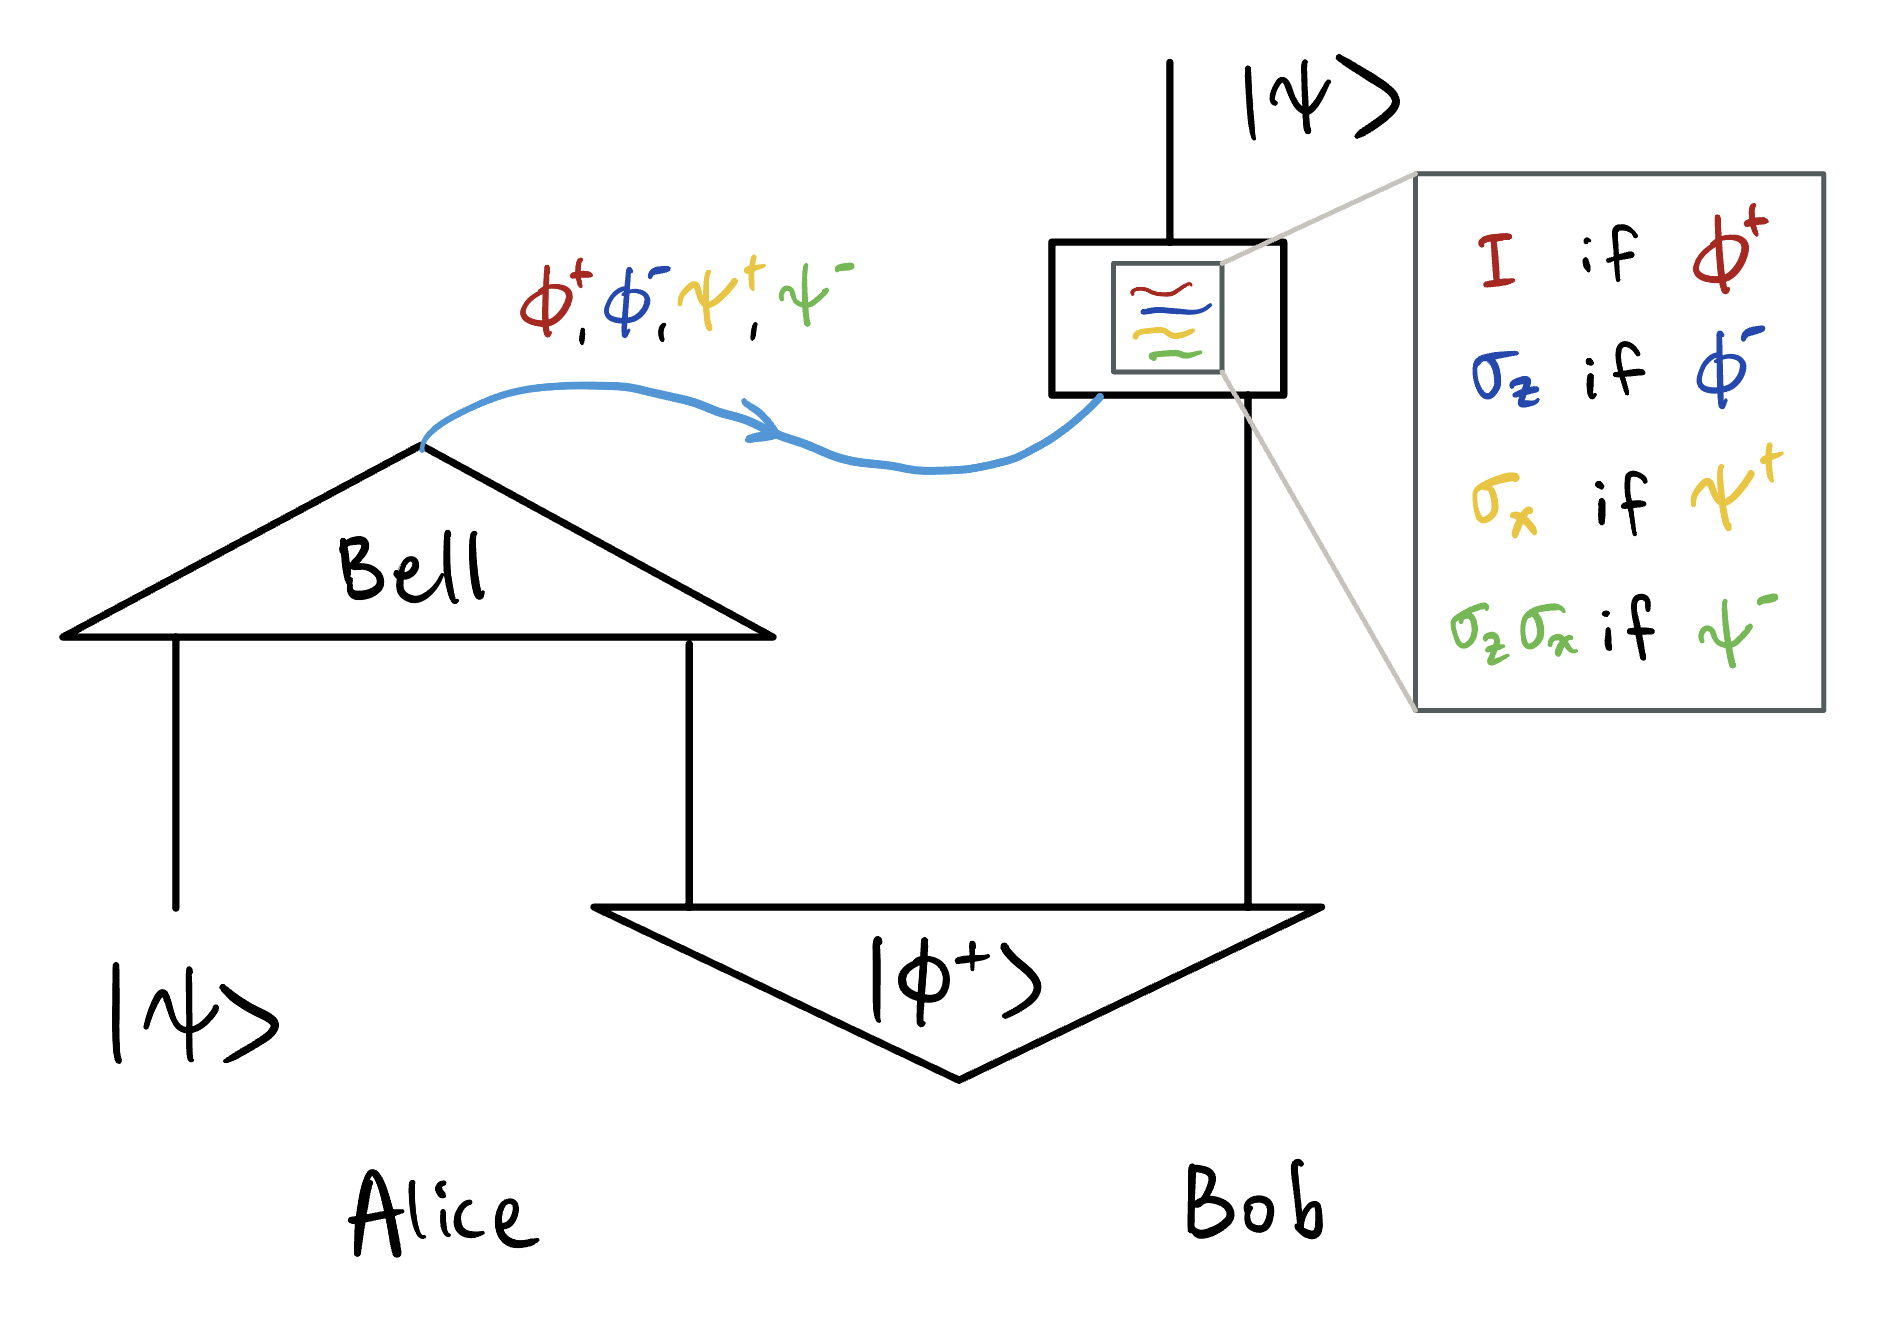 |ψ⟩
ϕ⁺, ϕ⁻, ψ⁺, ψ⁻
I if ϕ⁺
σ_z if ϕ⁻
σ_x if ψ⁺
σ_z σ_x if ψ⁻
Bell
|ψ⟩
|ϕ⁺⟩
Alice
Bob